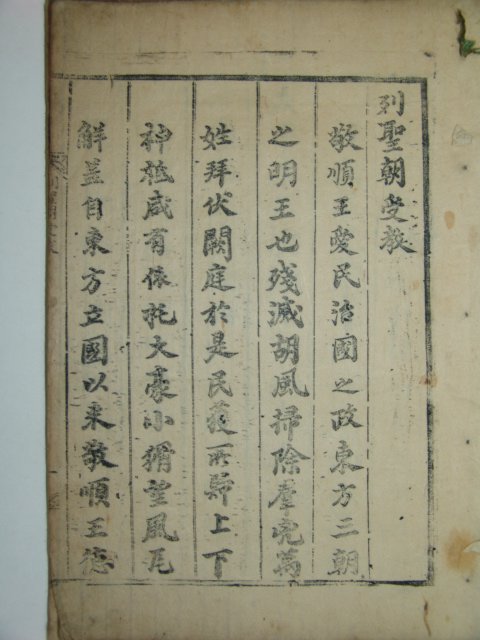 列聖朝受教
敬順王愛民治國之政東方三朝
之明王也殘滅胡風掃除塵兇萬
姓拜伏闕庭於是民獲所歸上下
神祗咸有依托大豪小猾望風瓦
解盖自東方立國以来敬順王德